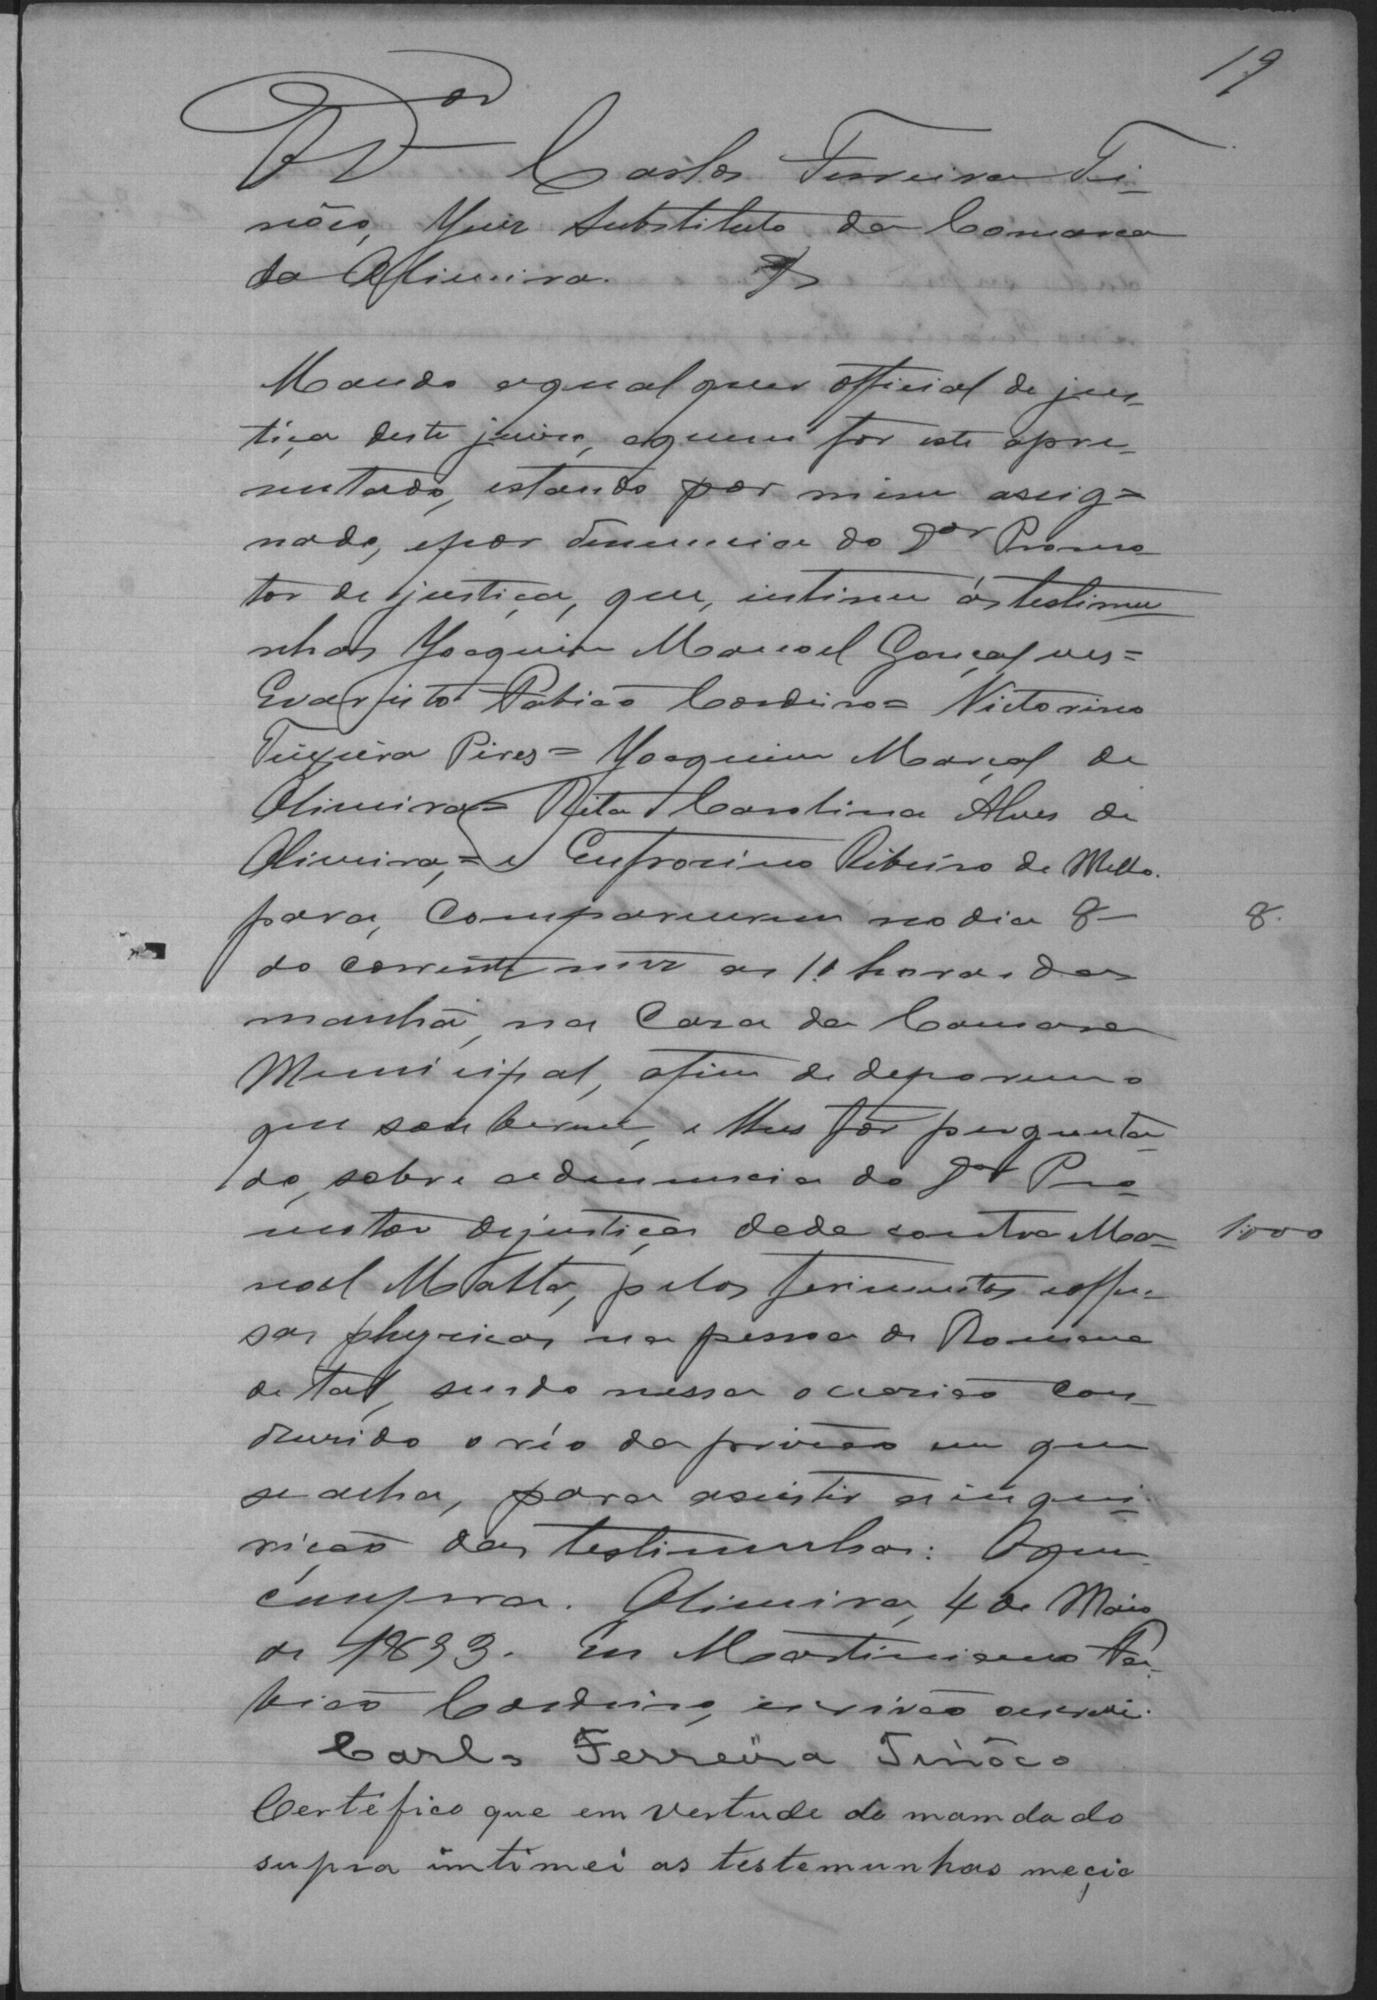 19
O Dor Carlos Ferreira Ti-
nôco, Juiz Substituto da Comarca
da Oliveira.
Mando aqualquer official de jus-
tiça deste juizo, aquem for este apre-
sentado, estando por mim assig=
nado, epor denuncia do Dor Promo
tor de justiça, que, intime ás testimu
nhas Joaquim Manoel Gonçalves=
Evaristo Fabião Cordeiro= Victorino
Teixeira Pires= Joaquim Marçal de
Oliveira= Rita Carolina Alves de
Oliveira,= e Eufrosino Ribeiro de Mello.
para, comparecerem no dia 8- 8.
do corrente mez as 11 horas da
manhã, na Casa da Camara
Municipal, afim de deporem o
que souberem, e lhes fôr pergunta-
do, sobre adenuncia do Dor Pro-
motor dejustiça dada contra Ma- 1.000
noel Matta, pelos ferimentos eoffen-
sas physicas na pessoa de Romana
de tal, sendo nessa occasião con-
duzido o réo da prisão em que
se acha, para assistir a inqui-
rição das testimunhas: Oque
cumpra. Oliveira, 4 de Maio
de 1893. Eu Martiniano Fa-
bião Cordeiro, escrivão oescrevi.
Carlos Ferreira Tinôco
Certefico que em vertude do mamdado
supra intimei as testemunhas meçio